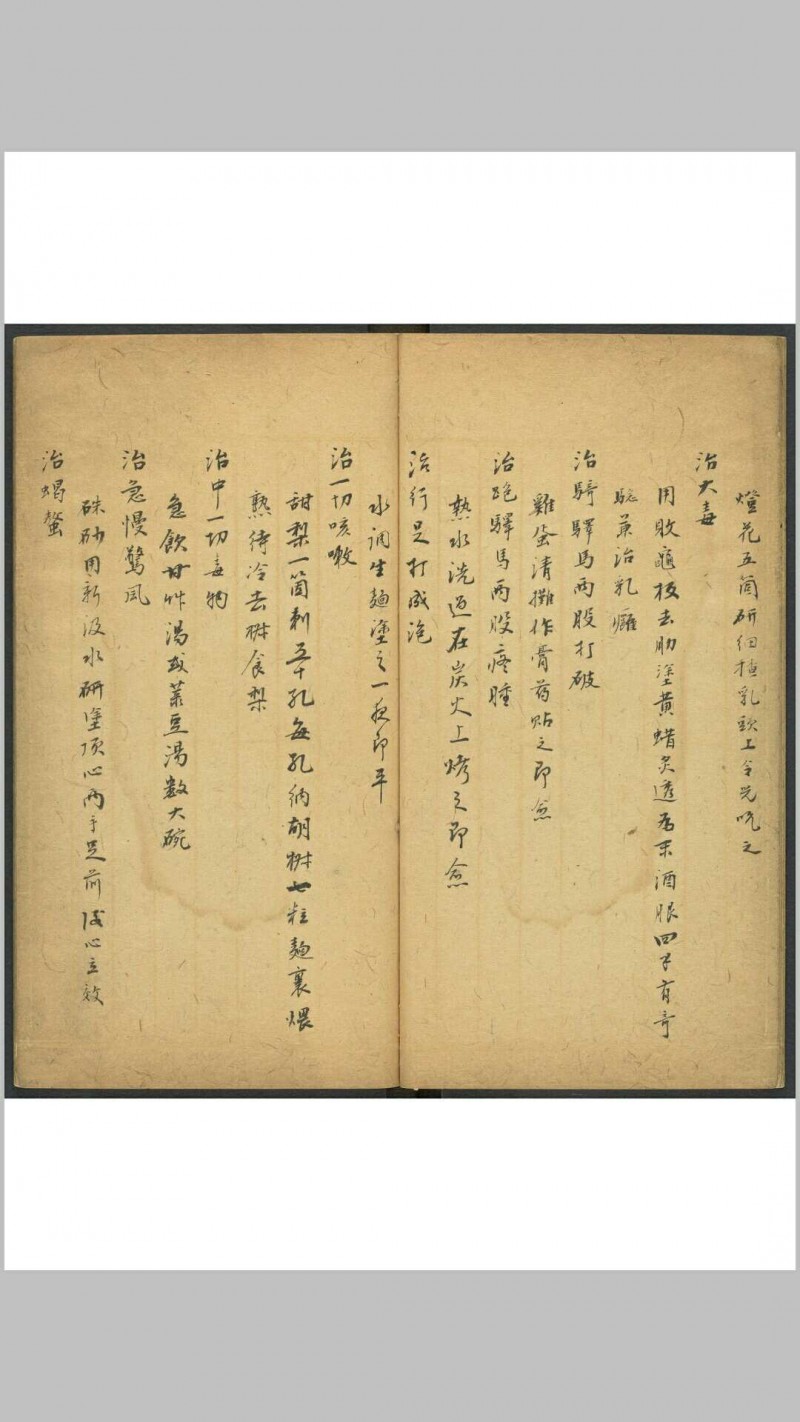 燈花五箇研細搽乳頭上令兒吮之
治大毒
用敗龜板去肋塗黃蜡炙透為末酒服四子有奇
騐兼治乳癰
治騎驛馬兩股打破
雞蛋清攤作膏药貼之即愈
治跑驛馬兩股疼腫
熱水洗過在炭火上烤之即愈
治行足打成泡
水調生麵塗之一夜即平
治一切咳嗽
甜梨一箇刺五十孔每孔納胡椒七粒麵裹煨
熟待冷去椒食梨
治中一切毒物
急飲甘艸湯或菉豆湯數大碗
治急慢驚風
硃砂用新汲水研塗頂心兩手足前後心立效
治蝎螫